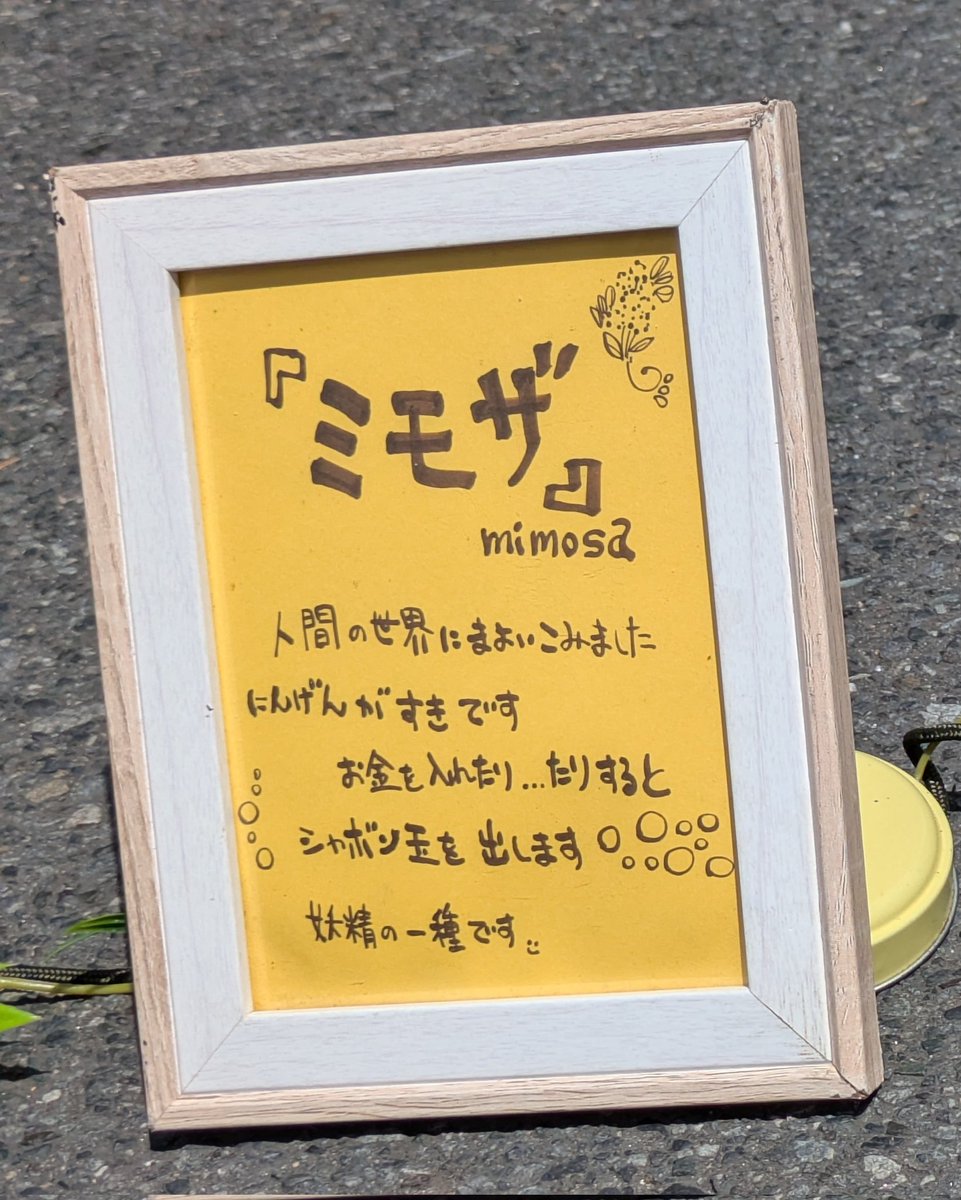 『ミモザ』
mimosa
人間の世界にまよいこみました
にんげんがすきです
お金を入れたり...たりすると
シャボン玉を出します
妖精の一種です